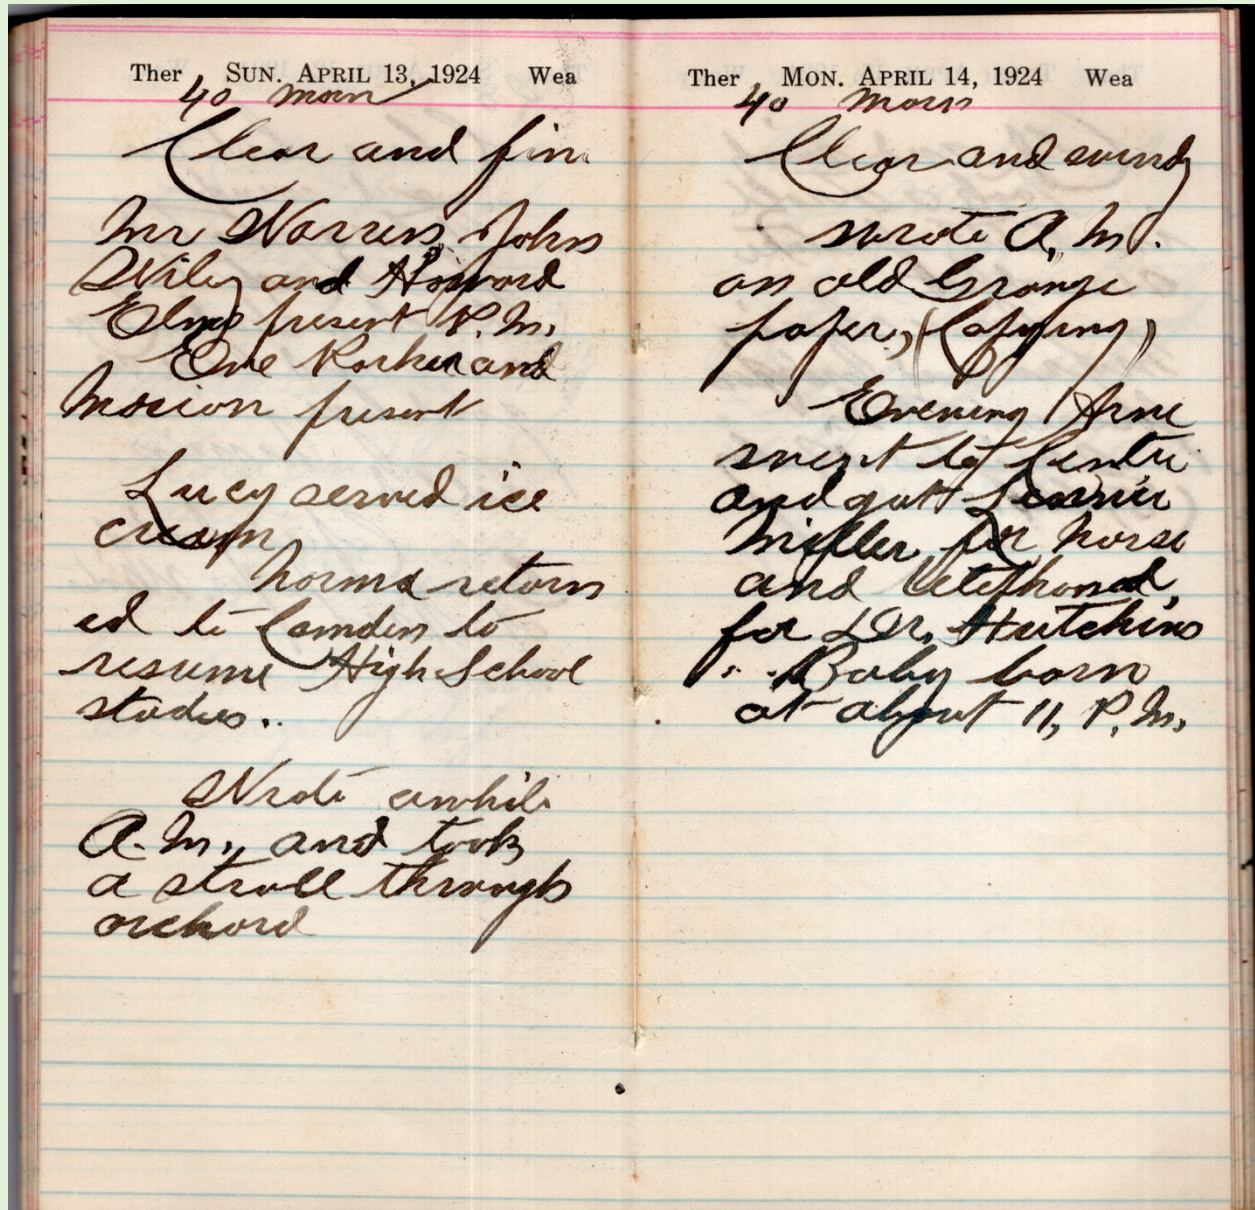 Ther SUN. APRIL 13, 1924 Wea
40 morn
Clear and fine
Mr Warren, John
Wiley and Howard
Elms present P. M.
Eve Parker and
Marion present
Lucy served ice
cream
Norma return
ed to Camden to
resume High School
studies..
Wrote awhile
A. M., and took
a stroll through
orchard
Ther MON. APRIL 14, 1924 Wea
40 morn
Clear and windy
wrote A. M.
on old Grange
paper, (Copying)
Evening Arne
went to Centre
and got
Miller for horse
and telephoned,
for Dr. Hutchins
Baby born
at about 11, P. M.